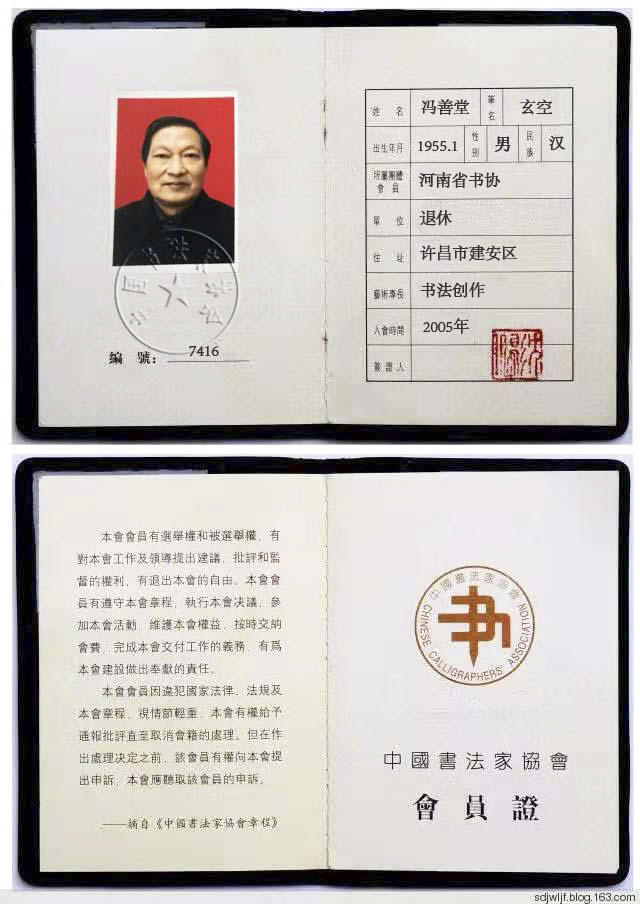 中國書法家協會
編 號： 7416
姓 名 冯善堂 筆名 玄空
出生年月 1955.1 性别 男 民族 汉
所屬團體會員 河南省书协
單 位 退休
住 址 许昌市建安区
藝術專長 书法创作
入會時間 2005年
簽證人
本會會員有選舉權和被選舉權，有
對本會工作及領導提出建議、批評和監
督的權利，有退出本會的自由。本會會
員有遵守本會章程、執行本會决議、參
加本會活動、維護本會權益、按時交納
會費、完成本會交付工作的義務，有爲
本會建設做出奉獻的責任。
本會會員因違犯國家法律、法規及
本會章程，視情節輕重，本會有權給予
通報批評直至取消會籍的處理。但在作
出處理决定之前，該會員有權向本會提
出申訴，本會應聽取該會員的申訴。
——摘自《中國書法家協會章程》
中國書法家協會
CHINESE CALLIGRAPHERS' ASSOCIATION
中國書法家協會
會員證
sdjwljf.blog.163.com